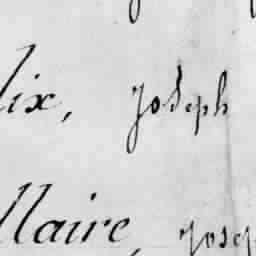 lix, Joseph
llaire, Josep